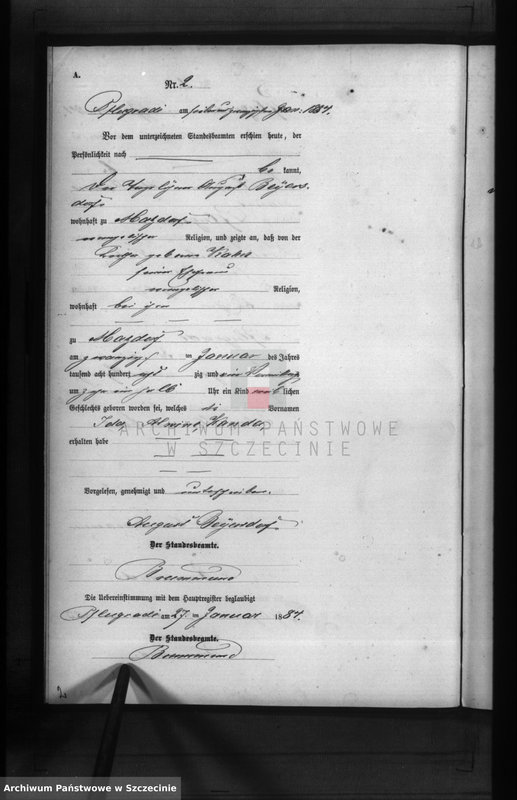 A.
Nr. 2.
Pflugrade am sieben und zwanzigsten Jan. 1884.
Vor dem unterzeichneten Standesbeamten erschien heute, der
Persönlichkeit nach
be kannt,
der August Beyers-
dorf
wohnhaft zu Mazdorf
evangelischer Religion, und zeigte an, daß von der
geborene
seiner Ehefrau
evangelischer Religion,
wohnhaft bei ihm
zu Mazdorf
am zwanzigsten Januar des Jahres
tausend acht hundert acht zig und vier Vormittags
um zehn ein halb Uhr ein Kind weib lichen
Geschlechts geboren worden sei, welches die Vornamen
Ida Alwine Wanda
erhalten habe
Vorgelesen, genehmigt und unterschrieben.
August Beyersdorf
Der Standesbeamte.
Die Uebereinstimmung mit dem Hauptregister beglaubigt
Pflugrade am 27. Januar 1884.
Der Standesbeamte.
2
ARCHIWUM PAŃSTWOWE
W SZCZECINIE
Archiwum Państwowe w Szczecinie